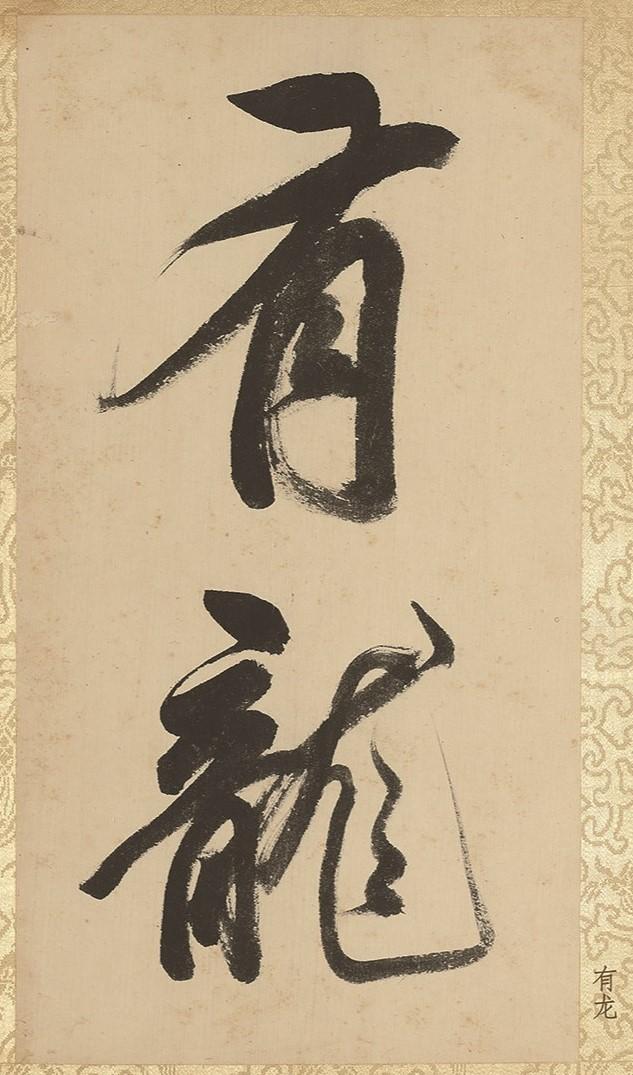 有龍
有龙